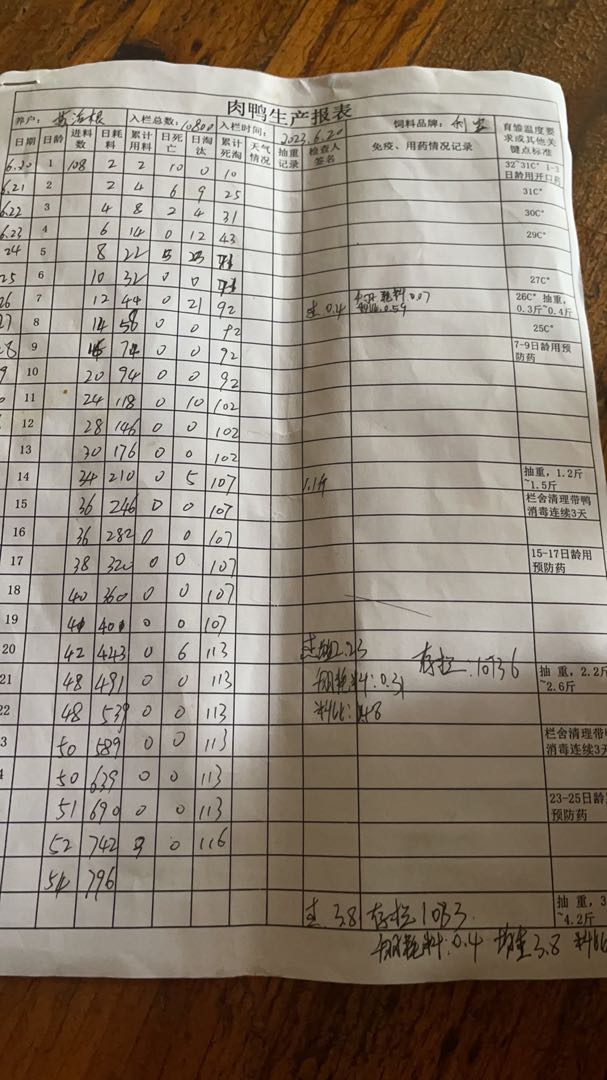 肉鸭生产报表
养户: 黄治根 入栏总数: 10800 入栏时间: 2023.6.20 饲料品牌:
日期 日龄 进料数 日耗料 累计用料 日死亡 日淘汰 累计死淘 天气情况 抽重记录 检查人签名 免疫、用药情况记录 育雏温度要求或其他关键点标准
6.20 1 108 2 2 10 0 10 32~31C° 1-3日龄用开口药
6.21 2 2 4 6 9 25 31C°
6.22 3 4 8 2 4 31 30C°
6.23 4 6 14 0 12 43 29C°
24 5 8 22
25 6 10 32 0 0 27C°
26 7 12 44 0 21 92 重 0.4 耗料:0.07 26C° 抽重,0.3斤~0.4斤
27 8 14 58 0 0 92 25C°
28 9 74 0 0 92 7-9日龄用预防药
9 10 20 94 0 0 92
11 24 118 0 10 102
12 28 146 0 0 102
13 30 176 0 0 102
14 34 210 0 5 107 1.1斤 抽重,1.2斤~1.5斤
15 36 246 0 0 107 栏舍清理带鸭消毒连续3天
16 36 282 0 0 107
17 38 320 0 0 107 15-17日龄用预防药
18 40 360 0 0 107
19 40 0 0 107
20 42 443 0 6 113 2.23 存栏:10736
21 48 491 0 0 113 日耗料:0.31 抽重,2.2斤~2.6斤
22 48 539 0 0 113 料比:1.48
3 50 589 0 0 113 栏舍清理带 消毒连续3天
4 50 639 0 0 113
51 690 0 0 113 23-25日龄 预防药
52 742 3 0 116
54 796
重 3.8 存栏1083 抽重,3 ~4.2斤
日耗料:0.4 均重3.8 料比